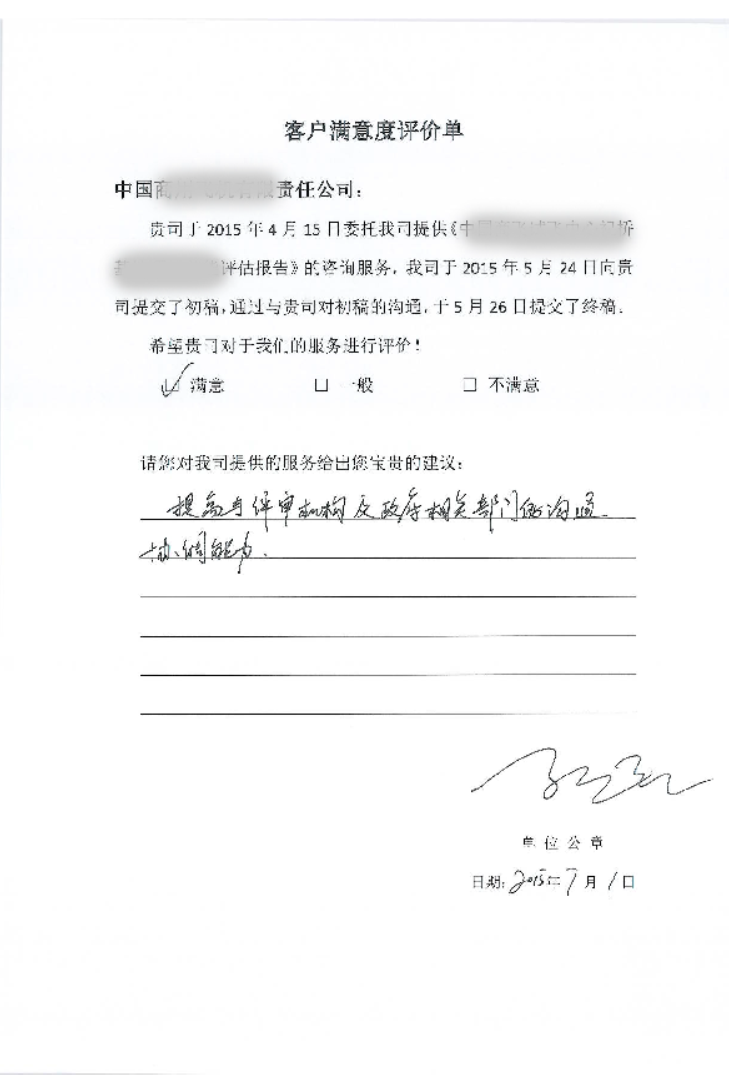 客户满意度评价单
中国 责任公司：
贵司于 2015 年 4 月 15 日委托我司提供《
评估报告》的咨询服务，我司于 2015 年 5 月 24 日向贵
司提交了初稿，通过与贵司对初稿的沟通，于 5 月 26 日提交了终稿．
希望贵司对于我们的服务进行评价！
满意 □ 一般 □ 不满意
请您对我司提供的服务给出您宝贵的建议：
提高与评审机构及政府相关部门的沟通、
协调能力．
单 位 公 章
日期：2015年7月1日